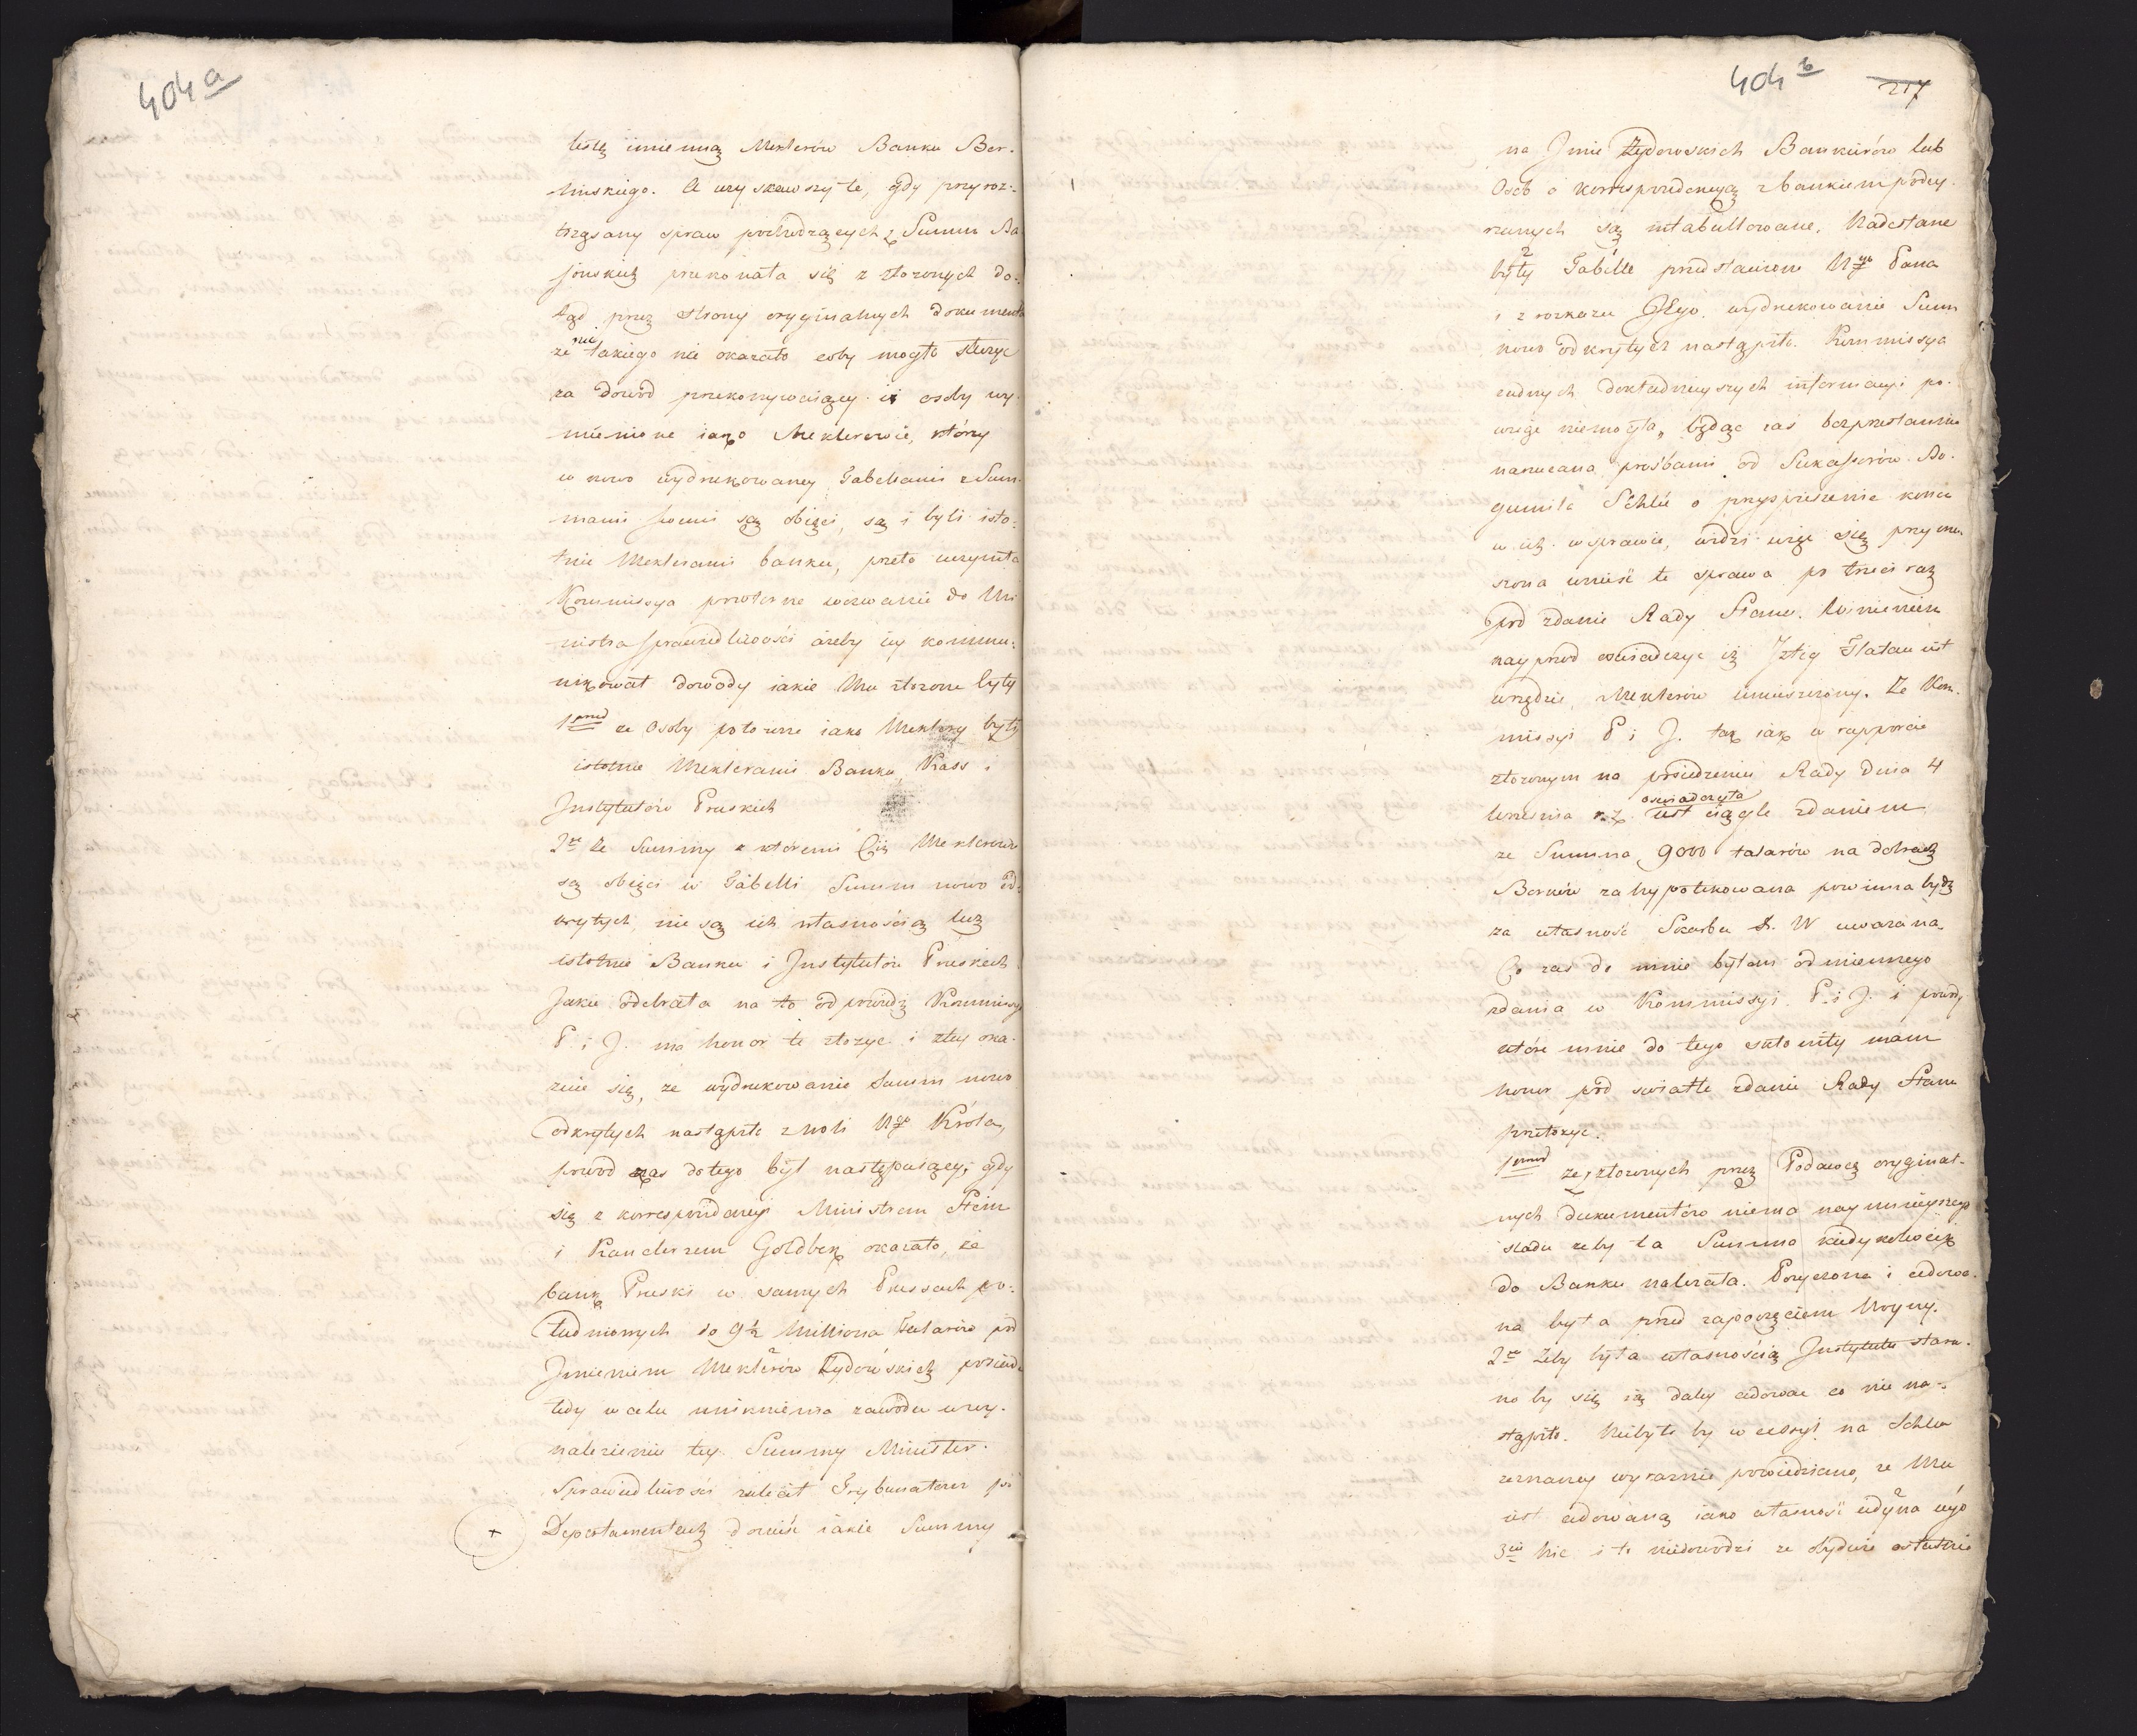 404 a
listę imienną Meklerów Banku Ber-
lińskiego. A uzyskawszy te, gdy przy roz-
trząsany spraw pochodzących z Summ Ba
jońskich przekonała się z złożonych do-
tąd przez strony oryginalnych dokumentó
że nic takiego nie okazało coby mogło służyć
za dowód przekonywaiący iż osoby wy-
mienione iako Meklerowie, którzy
w nowo wydrukowaney Tabellami z Sum-
mami swemi są obięci, są i byli isto-
tnie Meklerami banku, przeto uczyniła
Kommissya powtórne wezwanie do Mi
nistra sprawiedliwości ażeby iey kommu-
nikował dowody iakie Mu złożone były
1mo przed że Osoby położone iako Meklery były
istotnie Meklerami Banku, Kass i
Instytutów Pruskich
2re że Summy z któremi Ciż Meklerowie
są obięci w Tabelli Summ nowo od-
krytych, nie są ich własnością lecz
istotnie Banku i Instytutów Pruskich
Jaką odebrała na to odpowiedź Kommissya
P. i J. ma honor te złożyć i z tey oka-
zuie się, że wydrukowanie Summ nowo
odkrytych nastąpiło z woli Ngo Króla,
powód zaś do tego był następuiący; gdy
się z korrespondencyi Ministrem Stein
i Kanclerzem Goldbek okazało, że
bank Pruski w samych Prussach po-
łudniowych do 9½ Milliona talarów pod
Imieniem Meklerów Żydowskich posiada
tedy w celu uniknienia zawodu w wy-
nalezieniu tey Summy Minister
Sprawiedliwości zalecił Trybunałom po
+ Departamentach donieść iakie Summy
404 b
217
na Imie Żydowskich Bankierów lub
Osób o korrespondencyą z bankiem podey-
rzanych są intabullowane. Nadesłane
były Tabelle przedstawione Ngo Pana
i z rozkazu JEgo. wydrukowanie Summ
nowo odkrytych nastąpiło. Kommissya
żadnych dokładnieyszych informacyi po-
wziąć niemogła, będąc zaś bezprzestannie
nacierana prośbami od Sukcessorów Bo-
gumiła Schlü o przyspieszenie końca
w ich wsprawie, widzi więc się przymu-
szona wnieść te sprawa po trzeci raz
pod zdanie Rady Stanu. Winieniem
nayprzód oświadczyć iż Itzig Flatau iest
w rzędzie Meklerów umieszczony. Że Kom-
missyi P i J. tak iak w rapporcie
złożonym na posiedzeniu Rady Dnia 4
oświadczyła
Września r. z. iest ciągle zdaniem
że Summa 9000 talarów na dobrach
Borków zahypotekowana powinna bydź
za własność Skarbu X. W uważana.
Co zaś do mnie byłem odmiennego
zdania w Kommissyi P. i J. i powody
które mnie do tego skłoniły mam
honor pod światłe zdanie Rady Stanu
przełożyć.
1mo przed że z złożonych przez Podawcę oryginal-
nych dokumentów niema naymnieyszego
śladu żeby ta Summa kiedykolwiek
do Banku należała. Pożyczona i cedowa-
na była przed zapoczęciem Woyny.
2re Żeby była własnością Instytutu stara-
no by się ią daley cedować co nie na-
stąpiło. Niebyło by w cessyi na Schlu
zeznaney wyraznie powiedziano, że Mu
iest cedowaną iako własność iedyna iego
3cie Nic i to niedowodzi że obydwie ostatnie